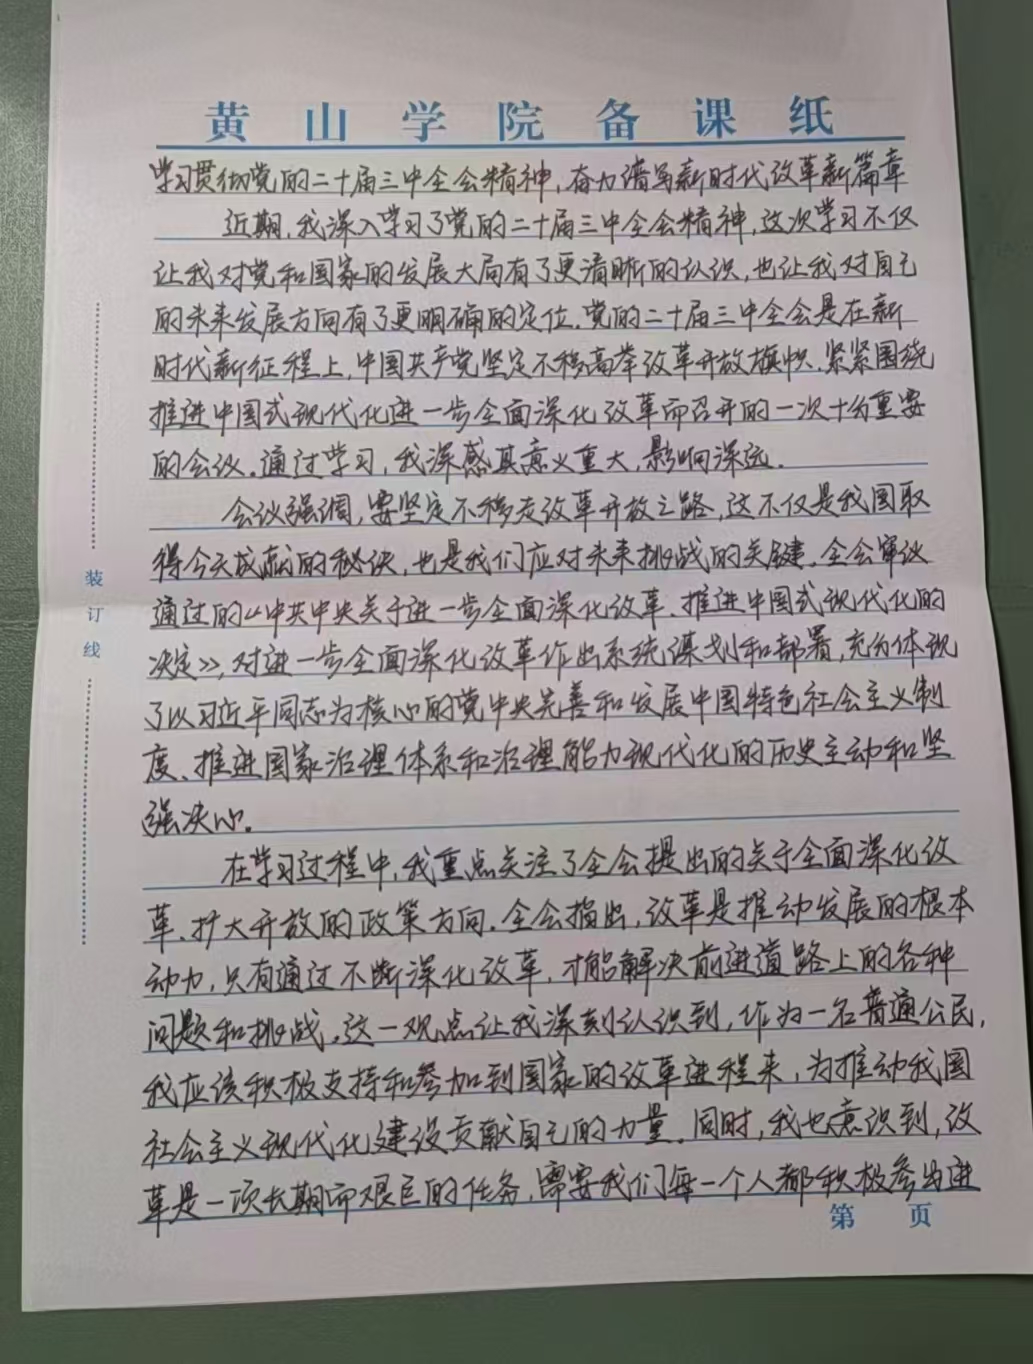 黄山学院备课纸
学习贯彻党的二十届三中全会精神,奋力谱写新时代改革新篇章
近期,我深入学习了党的二十届三中全会精神,这次学习不仅
让我对党和国家的发展大局有了更清晰的认识,也让我对自己
的未来发展方向有了更明确的定位.党的二十届三中全会是在新
时代新征程上,中国共产党坚定不移高举改革开放旗帜,紧紧围绕
推进中国式现代化进一步全面深化改革而召开的一次十分重要
的会议.通过学习,我深感其意义重大,影响深远.
会议强调,要坚定不移走改革开放之路,这不仅是我国取
得今天成就的秘诀,也是我们应对未来挑战的关键.全会审议
通过的《中共中央关于进一步全面深化改革、推进中国式现代化的
决定》,对进一步全面深化改革作出系统谋划和部署,充分体现
了以习近平同志为核心的党中央完善和发展中国特色社会主义制
度、推进国家治理体系和治理能力现代化的历史主动和坚
强决心。
在学习过程中,我重点关注了全会提出的关于全面深化改
革、扩大开放的政策方向.全会指出,改革是推动发展的根本
动力,只有通过不断深化改革,才能解决前进道路上的各种
问题和挑战.这一观点让我深刻认识到,作为一名普通公民,
我应该积极支持和参加到国家的改革进程来,为推动我国
社会主义现代化建设贡献自己的力量.同时,我也意识到,改
革是一项长期而艰巨的任务,需要我们每一个人都积极参与进
装订线
第 页